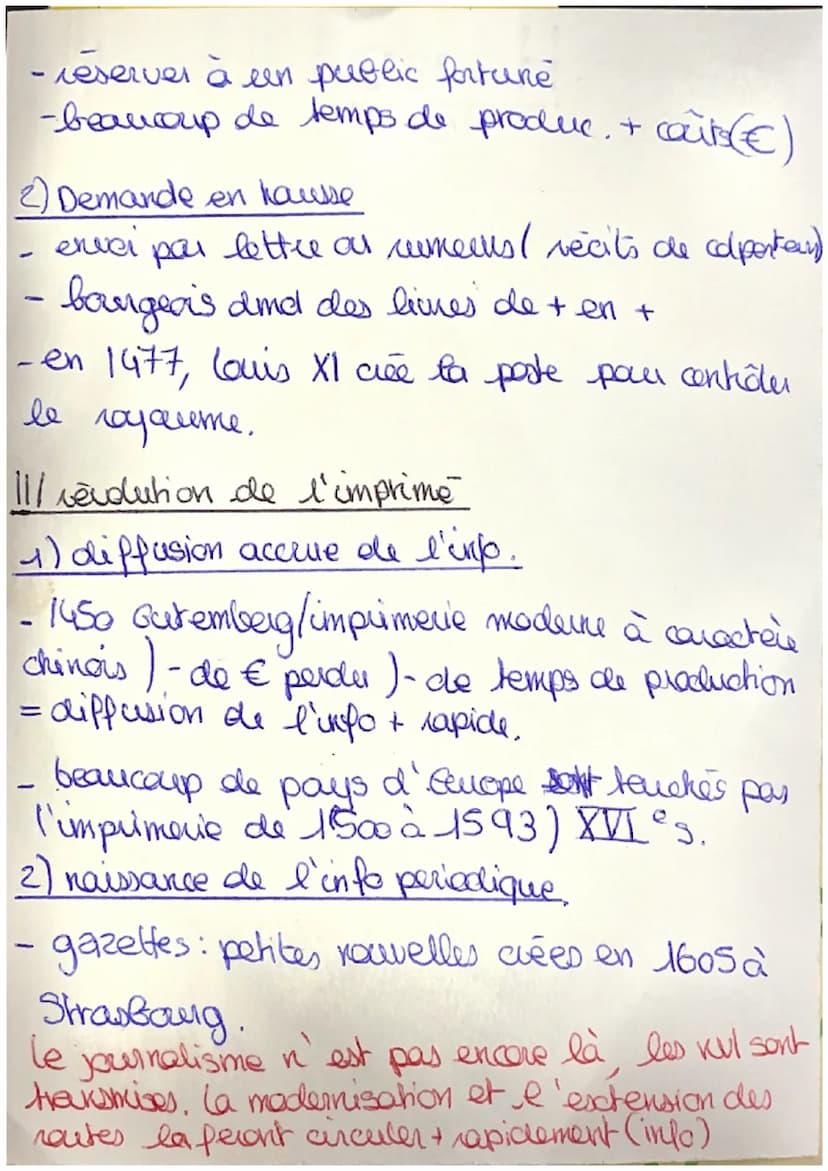 - réserver à un public fortuné
- beaucoup de temps de produc. + coûts(€)
2) Demande en hausse
- envoi par lettre ou rumeurs (récits de colporteurs)
- bourgeois dmd des livres de + en +
- en 1477, Louis XI crée la poste pour contrôler
le royaume.
III/ révolution de l'imprimé
1) diffusion accrue de l'info.
- 1450 Gutemberg/imprimerie moderne à caractère
chinois ) - de € perdu ) - de temps de production
= diffusion de l'info + rapide.
- beaucoup de pays d'Europe sont touchés par
l'imprimerie de 1500 à 1593 ) XVIe s.
2) naissance de l'info periodique.
- gazettes : petites nouvelles créées en 1605 à
Strasbourg.
Le journalisme n'est pas encore là, les sont
transmises. La modernisation et l'extension des
routes la feront circuler + rapidement (info)